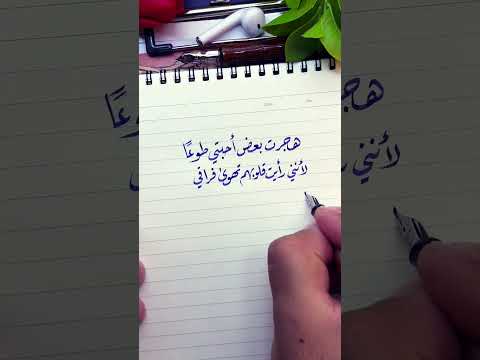 هجرت بعض أحبتي طوعًا
لأنني رأيت قلوبهم تهوى فراقي